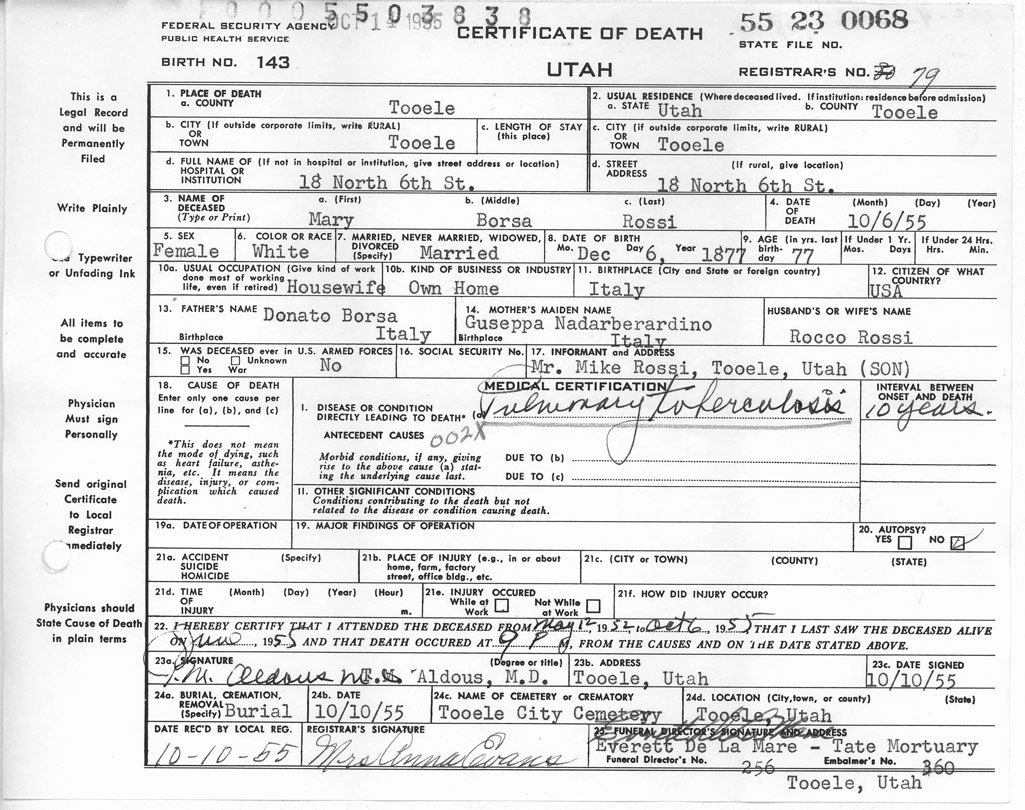 0005503838
FEDERAL SECURITY AGENCY OCT 14 1955
PUBLIC HEALTH SERVICE
CERTIFICATE OF DEATH
55 23 0068
STATE FILE NO.
BIRTH NO. 143
UTAH
REGISTRAR'S NO. 79
This is a
Legal Record
and will be
Permanently
Filed
Write Plainly
Typewriter
or Unfading Ink
All items to
be complete
and accurate
Physician
Must sign
Personally
Send original
Certificate
to Local
Registrar
Physicians should
State Cause of Death
in plain terms
1. PLACE OF DEATH
a. COUNTY Tooele
2. USUAL RESIDENCE (Where deceased lived. If institution: residence before admission)
a. STATE Utah b. COUNTY Tooele
b. CITY (If outside corporate limits, write RURAL)
OR
TOWN Tooele
c. LENGTH OF STAY
(this place)
c. CITY (if outside corporate limits, write RURAL)
OR
TOWN Tooele
d. FULL NAME OF (If not in hospital or institution, give street address or location)
HOSPITAL OR
INSTITUTION 18 North 6th St.
d. STREET (If rural, give location)
ADDRESS 18 North 6th St.
3. NAME OF DECEASED (Type or Print)
a. (First) b. (Middle) c. (Last)
Mary Borsa Rossi
4. DATE OF DEATH (Month) (Day) (Year)
10/6/55
5. SEX
Female
6. COLOR OR RACE
White
7. MARRIED, NEVER MARRIED, WIDOWED,
DIVORCED
(Specify) Married
8. DATE OF BIRTH
Mo. Dec Day 6, Year 1877
9. AGE (in yrs. last
birth-
day 77
If Under 1 Yr.
Mos. Days
If Under 24 Hrs.
Hrs. Min.
10a. USUAL OCCUPATION (Give kind of work
done most of working
life, even if retired) Housewife
10b. KIND OF BUSINESS OR INDUSTRY
Own Home
11. BIRTHPLACE (City and State or foreign country)
Italy
12. CITIZEN OF WHAT
COUNTRY?
USA
13. FATHER'S NAME Donato Borsa
Birthplace Italy
14. MOTHER'S MAIDEN NAME
Guseppa Nadarberardino
Birthplace Italy
HUSBAND'S OR WIFE'S NAME
Rocco Rossi
15. WAS DECEASED ever in U.S. ARMED FORCES
No Unknown
Yes War
No
16. SOCIAL SECURITY No.
17. INFORMANT and ADDRESS
Mr. Mike Rossi, Tooele, Utah (SON)
18. CAUSE OF DEATH
Enter only one cause per
line for (a), (b), and (c)
*This does not mean
the mode of dying, such
as heart failure, asthe-
nia, etc. It means the
disease, injury, or com-
plication which caused
death.
MEDICAL CERTIFICATION
I. DISEASE OR CONDITION
DIRECTLY LEADING TO DEATH* (a) Pulmonary tuberculosis
INTERVAL BETWEEN
ONSET AND DEATH
10 years.
ANTECEDENT CAUSES 002X
Morbid conditions, if any, giving
rise to the above cause (a) stat-
ing the underlying cause last.
DUE TO (b)
DUE TO (c)
II. OTHER SIGNIFICANT CONDITIONS
Conditions contributing to the death but not
related to the disease or condition causing death.
19a. DATE OF OPERATION
19. MAJOR FINDINGS OF OPERATION
20. AUTOPSY?
YES NO
21a. ACCIDENT (Specify)
SUICIDE
HOMICIDE
21b. PLACE OF INJURY (e.g., in or about
home, farm, factory
street, office bldg., etc.
21c. (CITY or TOWN) (COUNTY) (STATE)
21d. TIME (Month) (Day) (Year) (Hour)
OF
INJURY m.
21e. INJURY OCCURED
While at Work Not While at Work
21f. HOW DID INJURY OCCUR?
22. I HEREBY CERTIFY THAT I ATTENDED THE DECEASED FROM May 12, 1952, to Oct 6, 1955, THAT I LAST SAW THE DECEASED ALIVE
ON June, 1955 AND THAT DEATH OCCURED AT 9 P M, FROM THE CAUSES AND ON THE DATE STATED ABOVE.
23a. SIGNATURE (Degree or title)
Aldous Aldous, M.D.
23b. ADDRESS
Tooele, Utah
23c. DATE SIGNED
10/10/55
24a. BURIAL, CREMATION,
REMOVAL
(Specify) Burial
24b. DATE
10/10/55
24c. NAME OF CEMETERY or CREMATORY
Tooele City Cemetery
24d. LOCATION (City, town, or county) (State)
Tooele, Utah
DATE REC'D BY LOCAL REG.
10-10-55
REGISTRAR'S SIGNATURE
Mrs Anna Evans
25. FUNERAL DIRECTOR'S SIGNATURE AND ADDRESS
Everett De La Mare - Tate Mortuary
Funeral Director's No. 256 Embalmer's No. 360
Tooele, Utah